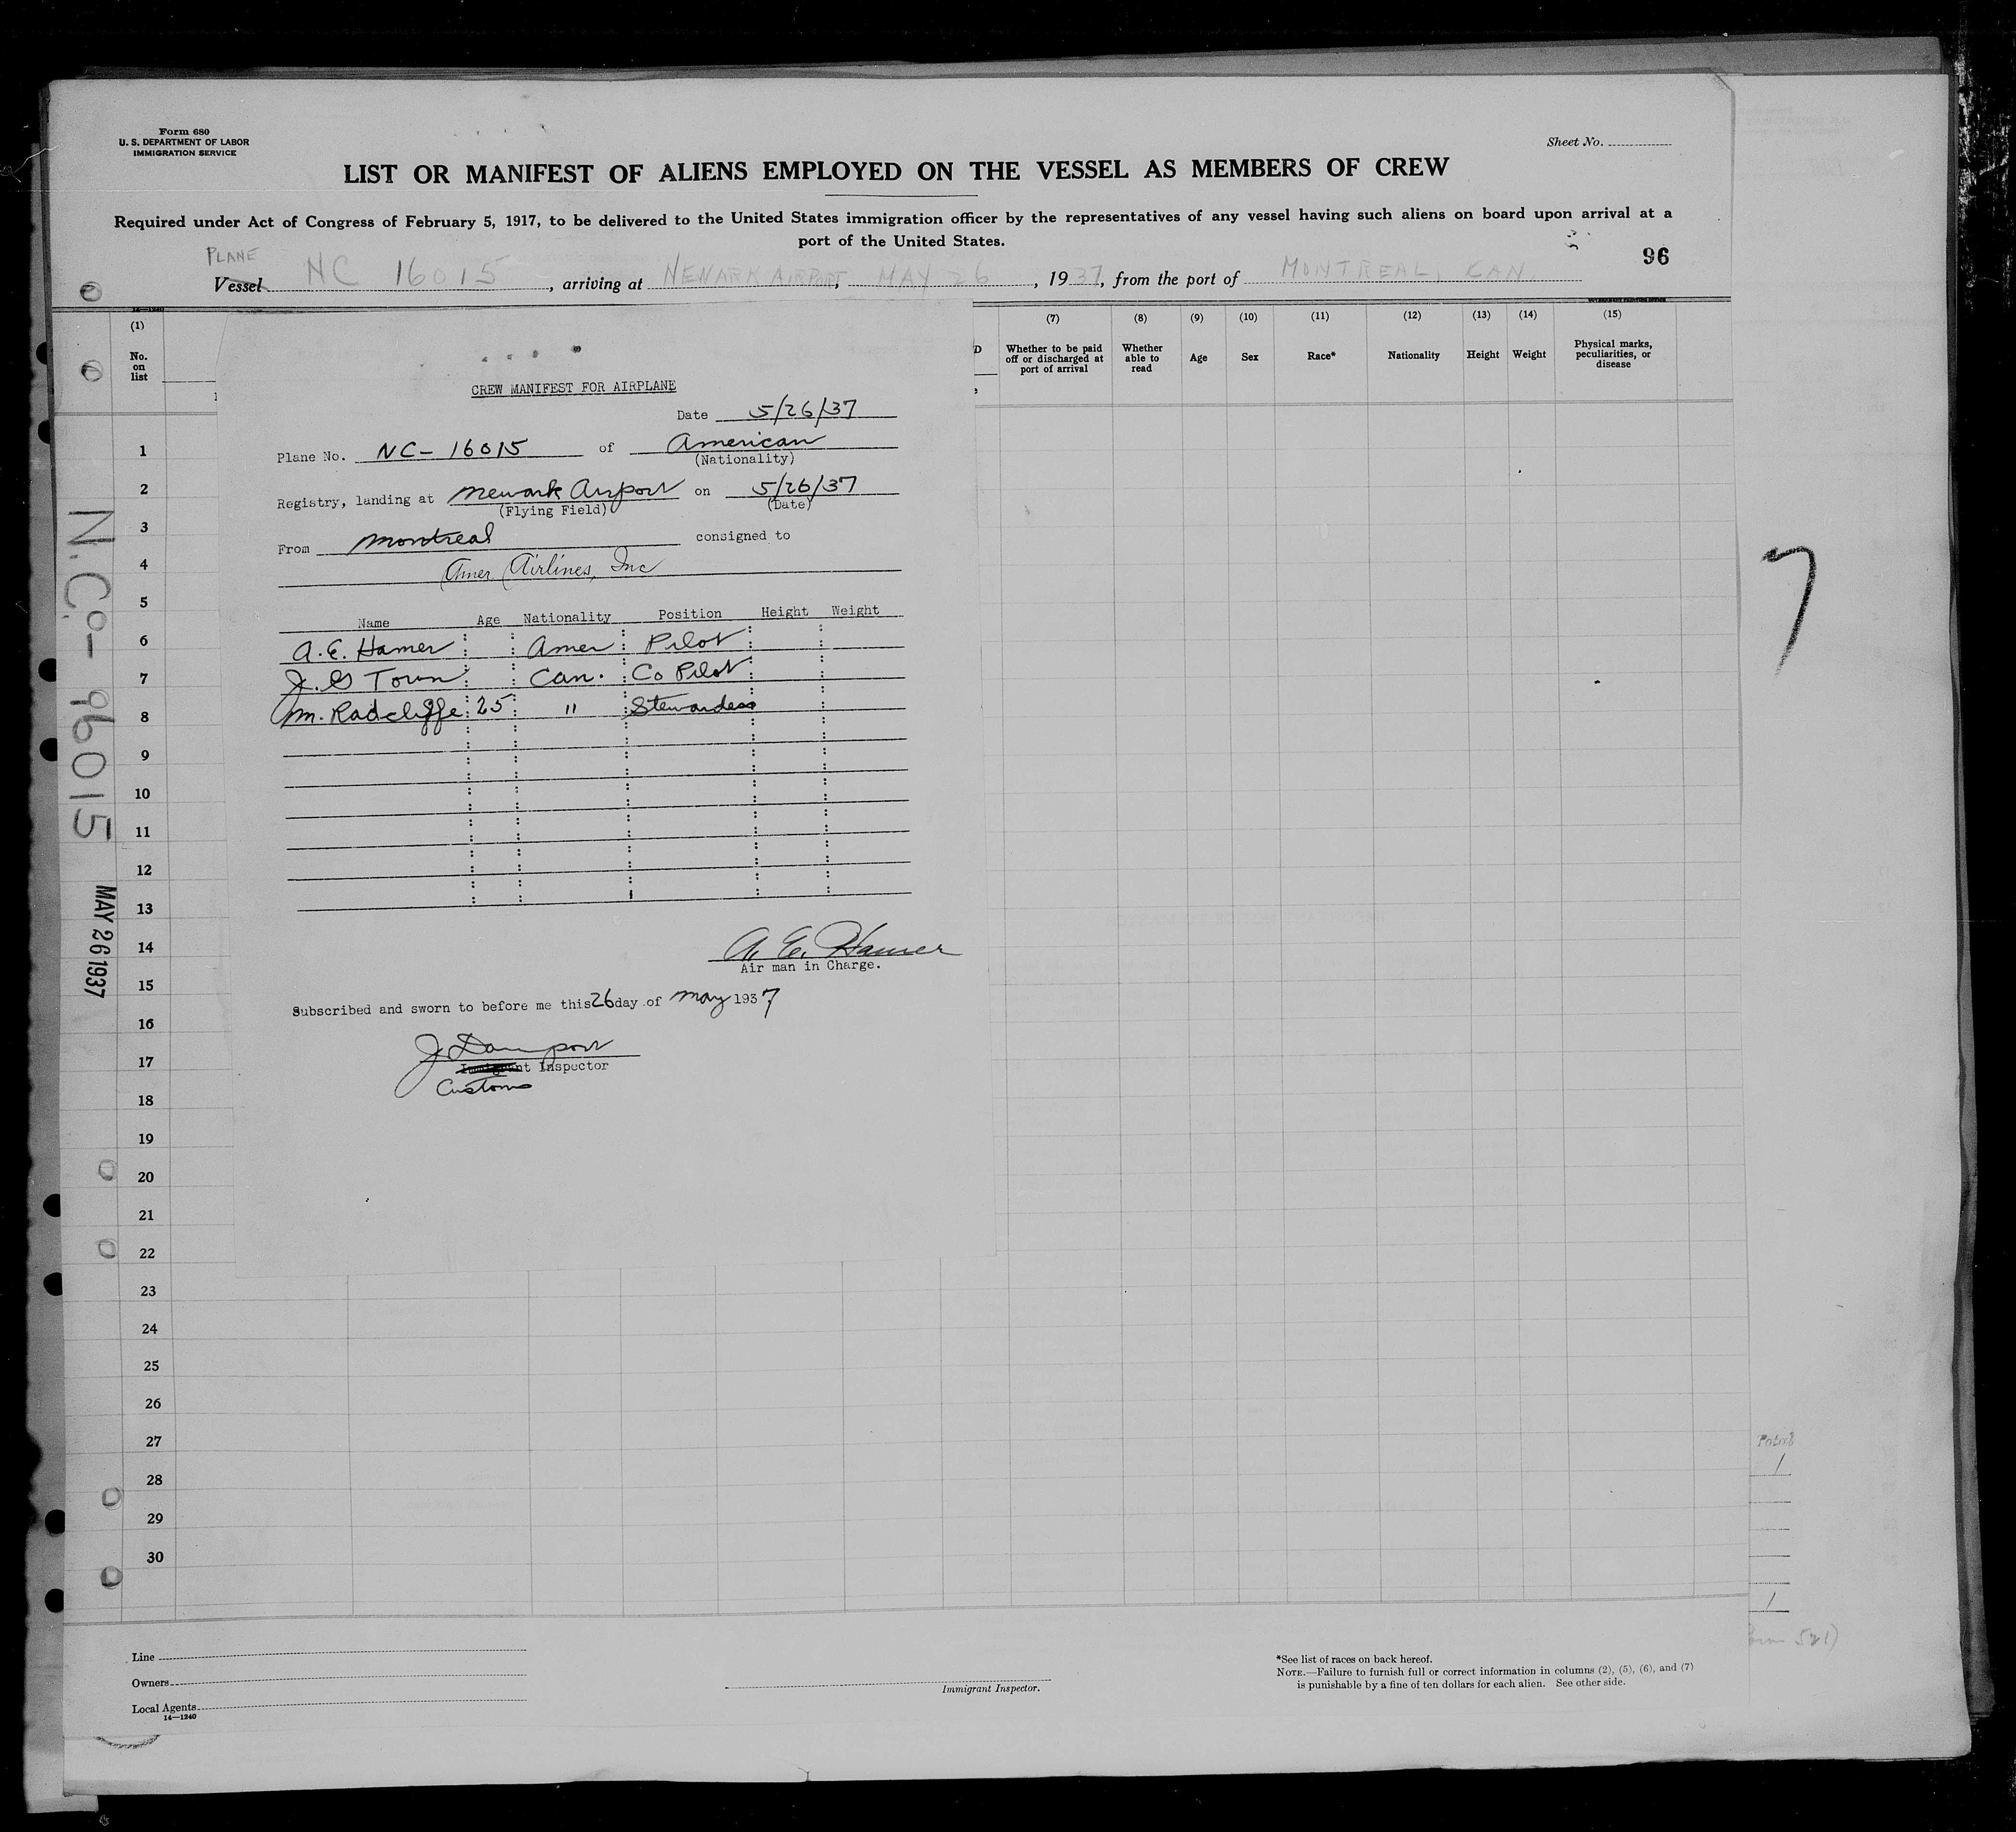 Form 680
U. S. DEPARTMENT OF LABOR
IMMIGRATION SERVICE
Sheet No.
LIST OR MANIFEST OF ALIENS EMPLOYED ON THE VESSEL AS MEMBERS OF CREW
Required under Act of Congress of February 5, 1917, to be delivered to the United States immigration officer by the representatives of any vessel having such aliens on board upon arrival at a
port of the United States.
96
PLANE
Vessel NC 16015, arriving at NEWARK AIRPORT, MAY 26, 1937, from the port of MONTREAL, CAN.
(1) (7) (8) (9) (10) (11) (12) (13) (14) (15)
No. on list
Whether to be paid off or discharged at port of arrival
Whether able to read
Age
Sex
Race*
Nationality
Height
Weight
Physical marks, peculiarities, or disease
CREW MANIFEST FOR AIRPLANE
Date 5/26/37
Plane No. NC-16015 of American
(Nationality)
Registry, landing at Newark Airport on 5/26/37
(Flying Field) (Date)
From Montreal consigned to
Amer Airlines, Inc
Name Age Nationality Position Height Weight
A. E. Hamer Amer Pilot
J. G Town Can. Co Pilot
M. Radcliffe 25 " Stewardess
A. E. Hamer
Air man in Charge.
Subscribed and sworn to before me this 26 day of May 1937
Inspector
Customs
1
2
3
4
5
6
7
8
9
10
11
12
13
14
15
16
17
18
19
20
21
22
23
24
25
26
27
28
29
30
N.C.- 96015
MAY 26 1937
7
1
1
Line
Owners
Local Agents
14—1240
Immigrant Inspector.
*See list of races on back hereof.
NOTE.—Failure to furnish full or correct information in columns (2), (5), (6), and (7)
is punishable by a fine of ten dollars for each alien. See other side.